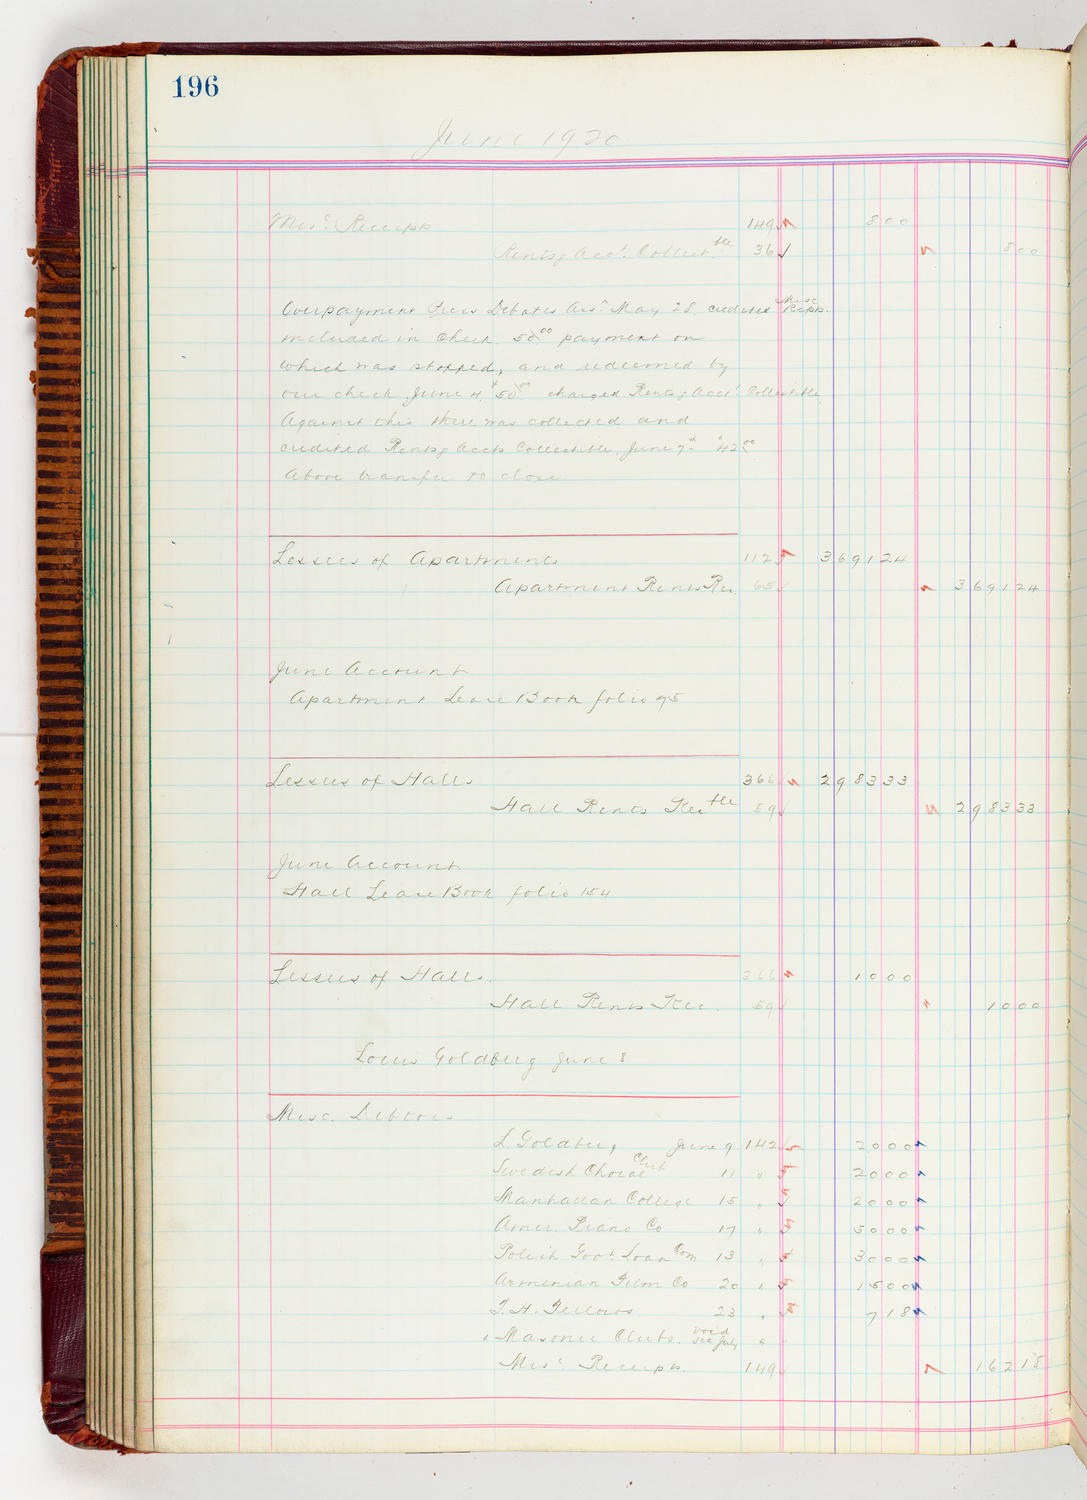 196
June 1920
Misc. Receipts 149 8 00
Rents & Acc. Collectble 36 8 00
Overpayment Debates May 28, credited Misc Rcpts.
included in check 50 00 payment on
which was stopped, and redeemed by
our check June 4, $50 00 charged Rents & Accts Collectible
Against this there was collected and
credited Rents & Accts Collectible, June 7 $42 00
Above transfer to close
Lessees of Apartments 112 3691 24
Apartment Rents Rec. 65 3691 24
June Account
Apartment Lease Book folio 95
Lessees of Halls 366 2983 33
Hall Rents Recble 59 2983 33
June Account
Hall Lease Book folio 154
Lessees of Halls. 366 10 00
Hall Rents Rec. 59 10 00
Louis Goldberg June 8
Misc. Debtors
L. Goldberg June 9 142 20 00
Swedish Choral Club 11 " 20 00
Manhattan College 15 " 20 00
Amer. Piano Co 17 " 50 00
Polish Govt Loan Com 13 " 30 00
Armenian Film Co 20 " 15 00
T. H. Fellows 23 " 7 18
Masonic Clubs. void see July "
Misc Receipts. 149 162 18